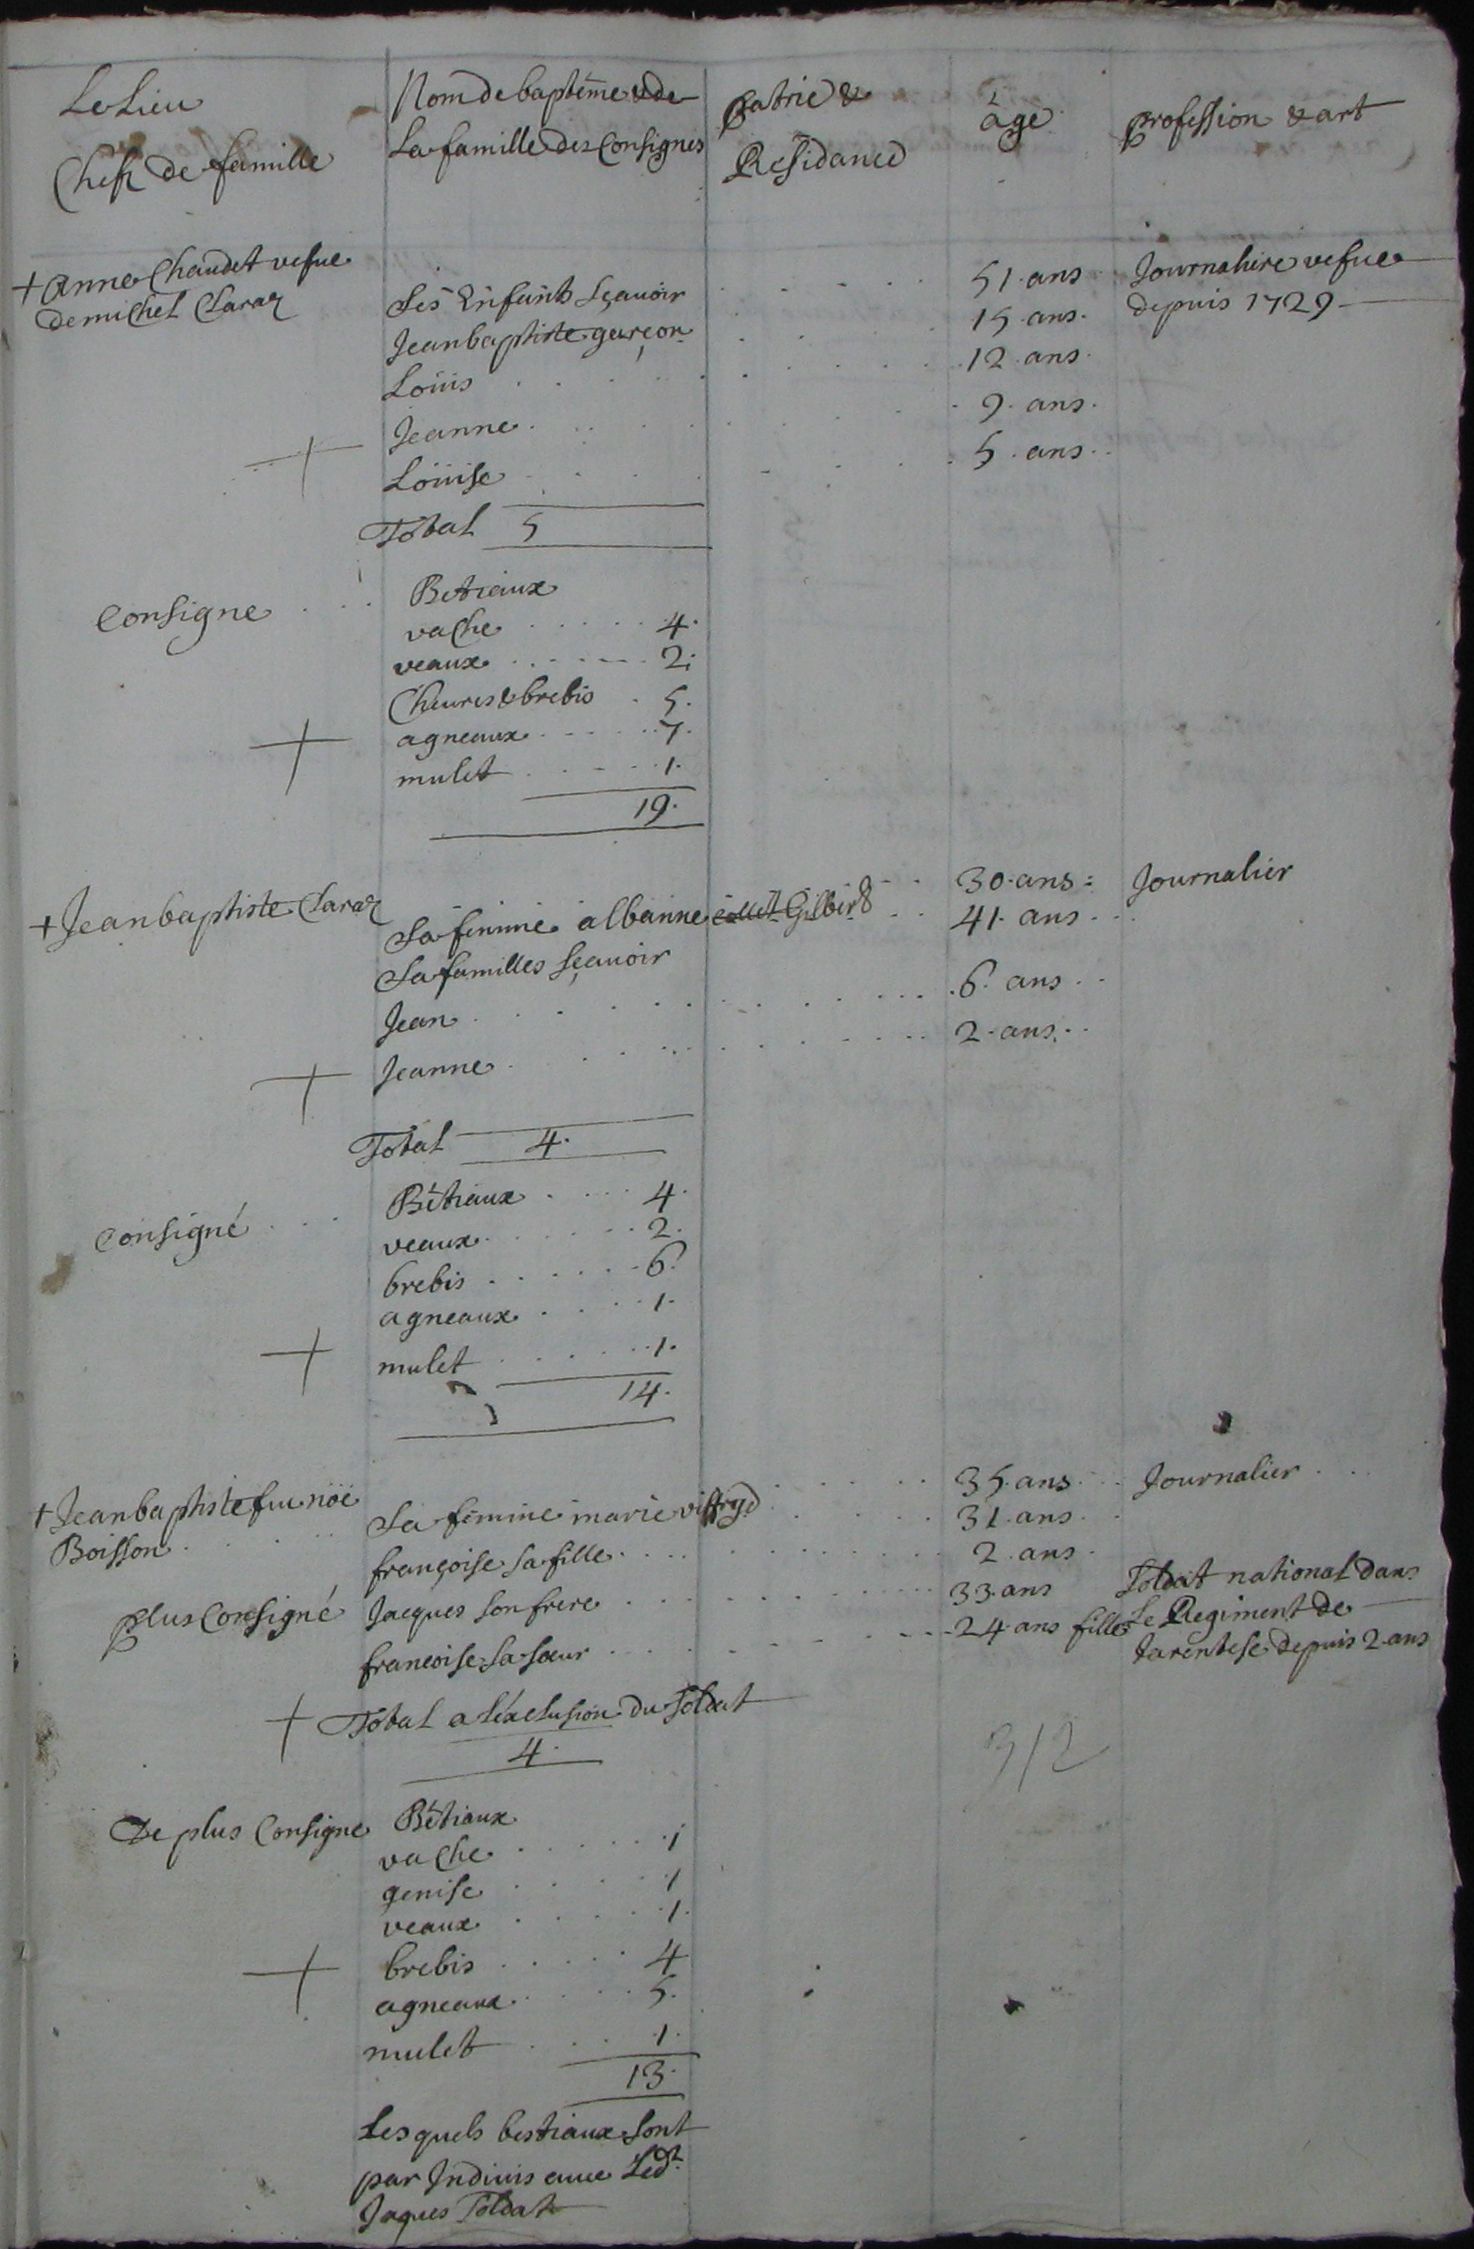 Le Lieu
Chefz de famille
Nom de baptéme & de
La famille des Consignes
patrie &
Residance
âge
profession & art
+ Anne Chaudet vefue
de michel Claraz
51 ans
Journaliere vefue
depuis 1729
Ses Enfants sçauoir
Jean baptiste garçon 15 ans
Loüis 12 ans
Jeanne 9 ans
Loüise 5 ans
Total 5
Consigne
Betiaux
vache 4
veaux 2
Cheures & brebis 5
agneaux 7
mulet 1
19
+ Jean baptiste Claraz 30 ans Journalier
Sa femme albanne Gilbert 41 ans
Sa familles sçauoir
Jean 6 ans
Jeanne 2 ans
Total 4
Consigné
Bétiaux 4
veaux 2
brebis 6
agneaux 1
mulet 1
14
+ Jean baptiste fui noë
Boisson
35 ans Journalier
Sa femme marie 31 ans
françoise sa fille 2 ans
plus Consigné
Jacques son frere 33 ans
Soldat national dans
Le Regiment de
Tarentese depuis 2 ans
francoise sa sœur 24 ans fille
Total a léxclusion du soldat
4
312
De plus Consigne
Bétiaux
vache 1
genise 1
veaux 1
brebis 4
agneaux 5
mulet 1
13
Lesquels bestiaux sont
par Indiuis auec Ledt
Jaques Soldat